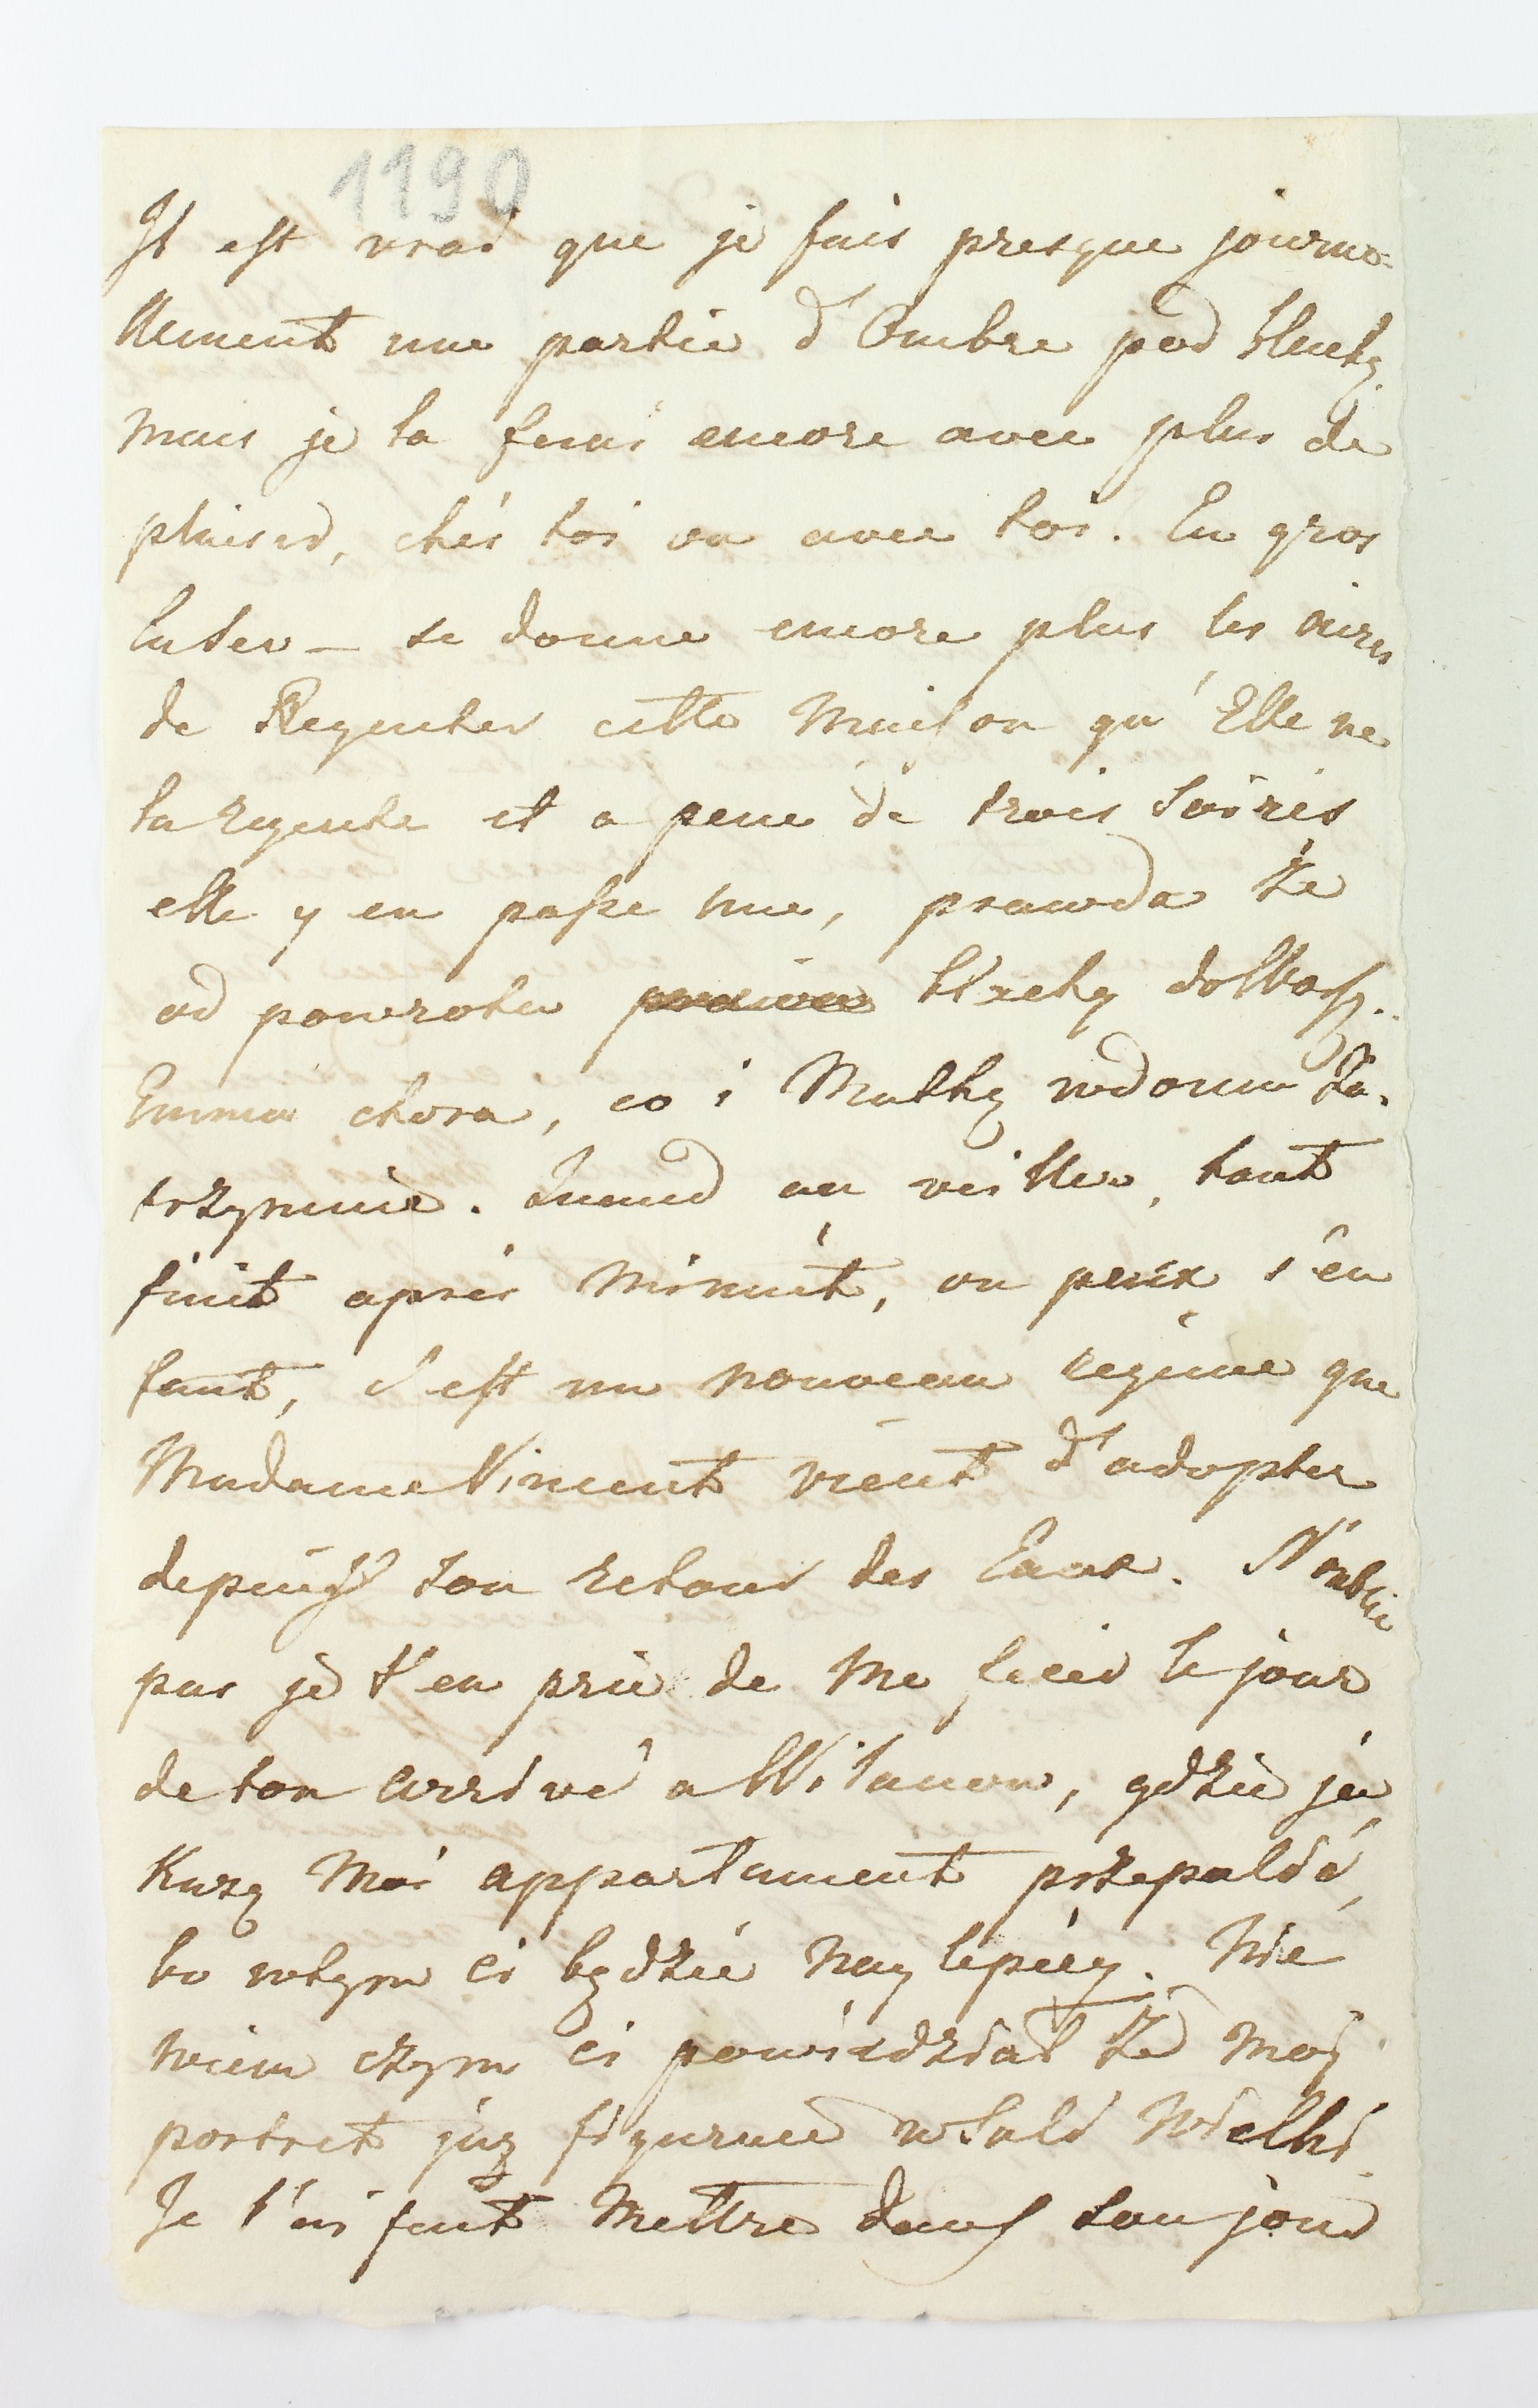 1190
Il est vrai que je fais presque journa-
llement une partie d'Ombre pod Blachą
mais je la ferai encore avec plus de
plaisir, chés toi ou avec toi. En gros
se donne encore plus les airs
de Regenter cette Maison qu'Elle ne
la regente et a pene de trois Soirés
elle y en passe une, prawda że
od powrotu do Warsz.
Emma chora, co i Matkę w domu za-
trzymuie. Quand on veille, tout
finit aprés Minuit, ou peux s'en
faut, c'est un nouveau regime que
Madame Vincent vient d'adopter
depuis son retour des Eaux. N'oublie
pas je t'en prie de me fixer le jour
de ton arrivé a Willanow, gdzie ja
Każę Moi appartament przepalić,
bo w tym ci będzie naylepiéy. Nie
wiem czym ci powiedział że Mój
portret juz figuruie w Sali Wielki.
Je l'ai fait Mettre dans son jour